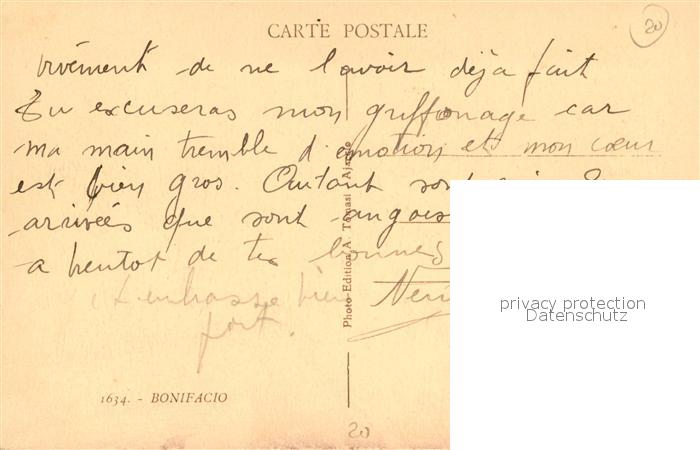 CARTE POSTALE
20
vivement de ne l'avoir déja fait
Tu excuseras mon griffonage car
ma main tremble d'emotion et mon cœur
est bien gros. Autant sont
arrivées que sont angois
a bientot de tes bonnes
T'embrasse bien
fort.
Photo-Edition A. Tomasi - Ajaccio
privacy protection
Datenschutz
1634. - BONIFACIO
20